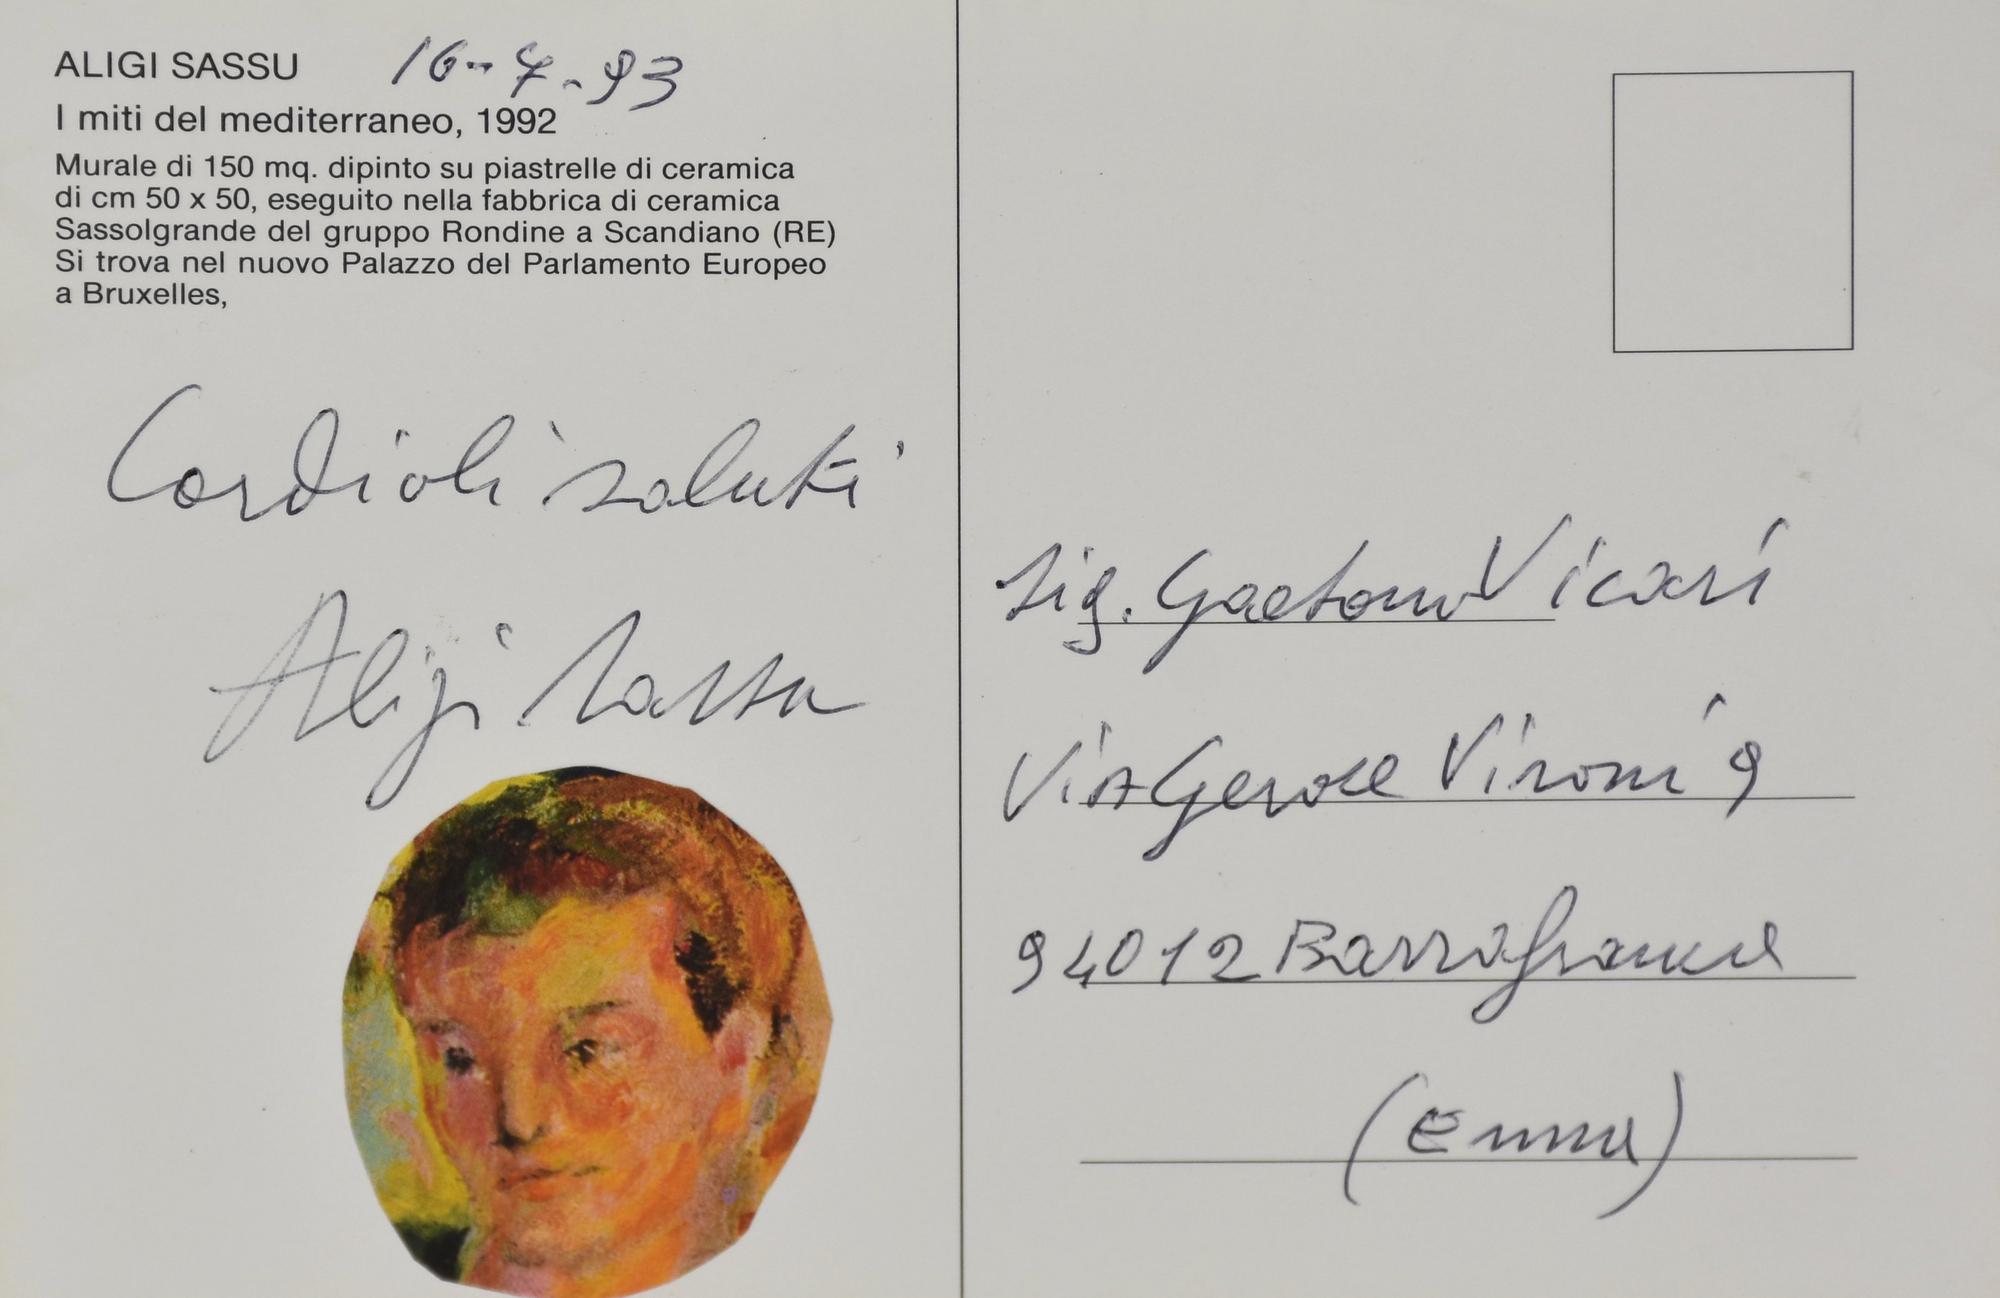 ALIGI SASSU 16-7-93
I miti del mediterraneo, 1992
Murale di 150 mq. dipinto su piastrelle di ceramica
di cm 50 x 50, eseguito nella fabbrica di ceramica
Sassolgrande del gruppo Rondine a Scandiano (RE)
Si trova nel nuovo Palazzo del Parlamento Europeo
a Bruxelles,
Cordiali saluti
Aligi Sassu
Sig. Gaetano Vicari
Via 9
94012 Barrafranca
(Enna)